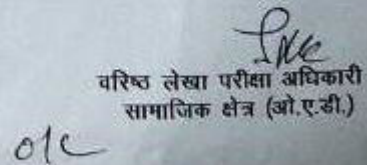 वरिष्ठ लेखा परीक्षा अधिकारी
सामाजिक क्षेत्र (ओ.ए.डी.)
o/c